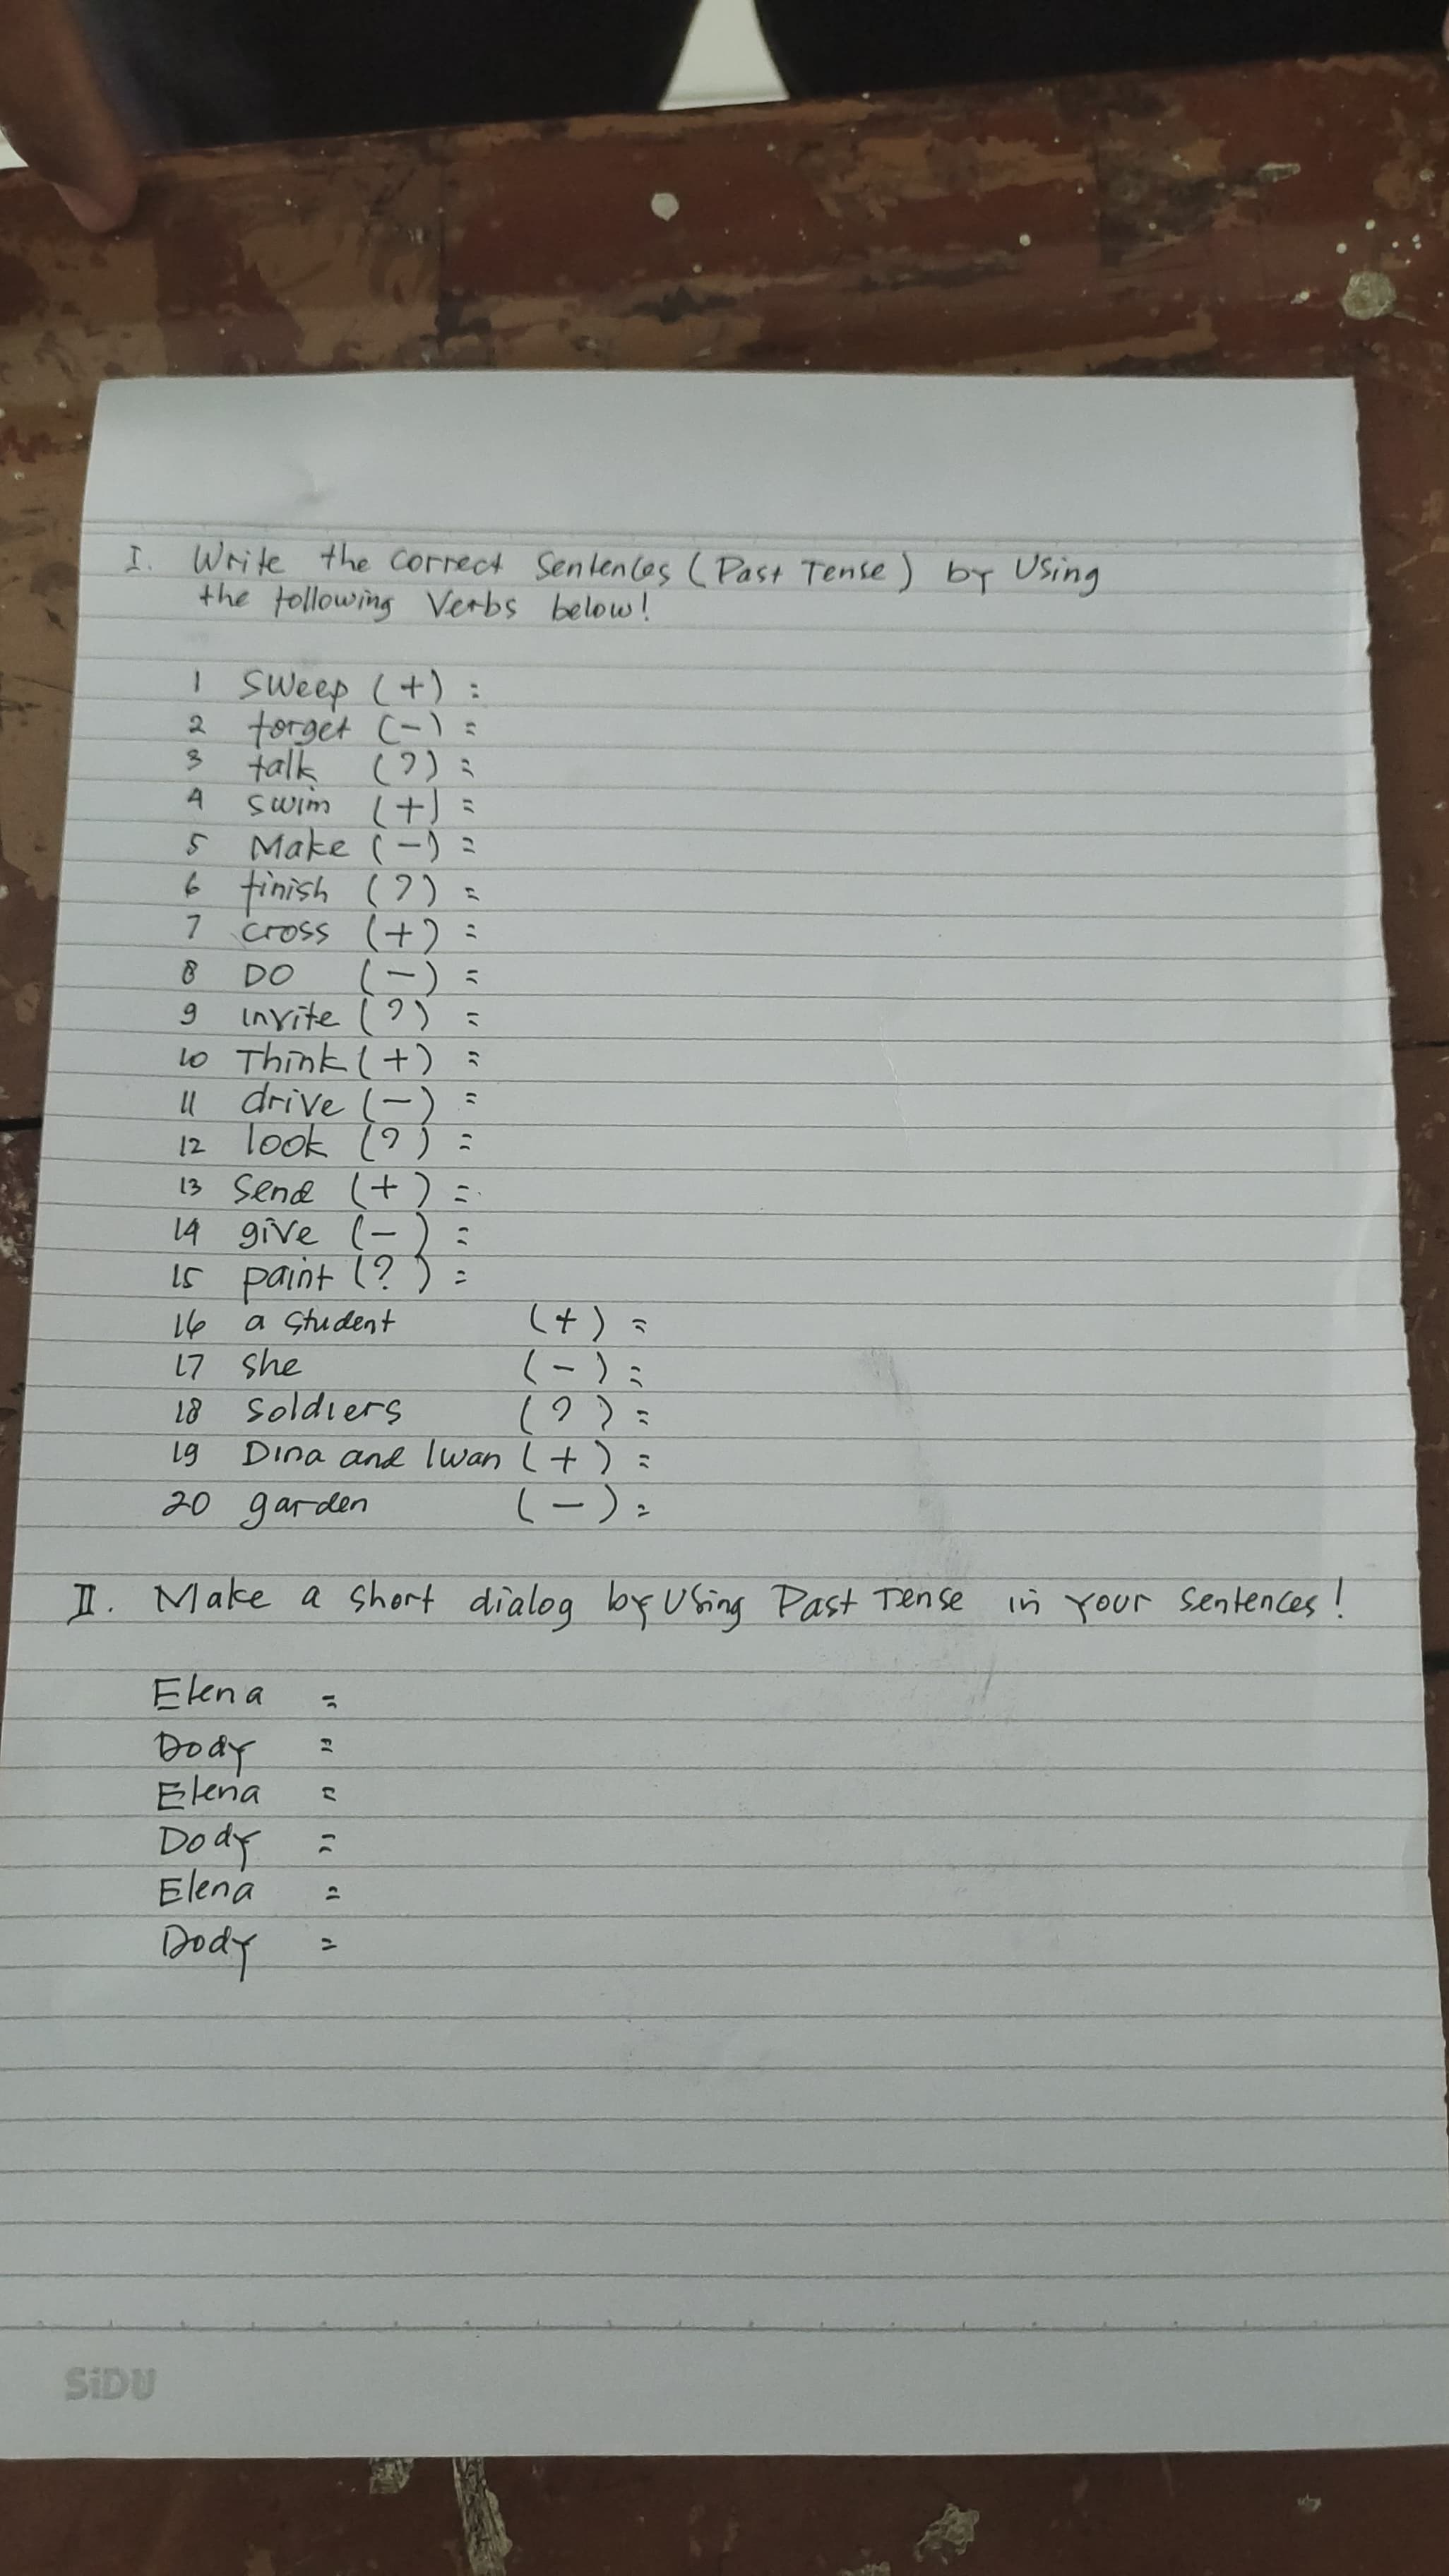 I. Write the correct Sentences (Past Tense) by Using
the following Verbs below!
1 Sweep (+) =
2 forget (-) =
3 talk (?) =
4 swim (+) =
5 Make (-) =
6 finish (?) =
7 cross (+) =
8 DO (-) =
9 invite (?) =
10 Think (+) =
11 drive (-) =
12 look (?) =
13 Send (+) =
14 give (-) =
15 paint (?) =
16 a student (+) =
17 she (-) =
18 soldiers (?) =
19 Dina and Iwan (+) =
20 garden (-) =
II. Make a short dialog by Using Past Tense in your sentences!
Elena =
Dody =
Elena =
Dody =
Elena =
Dody =
SiDU